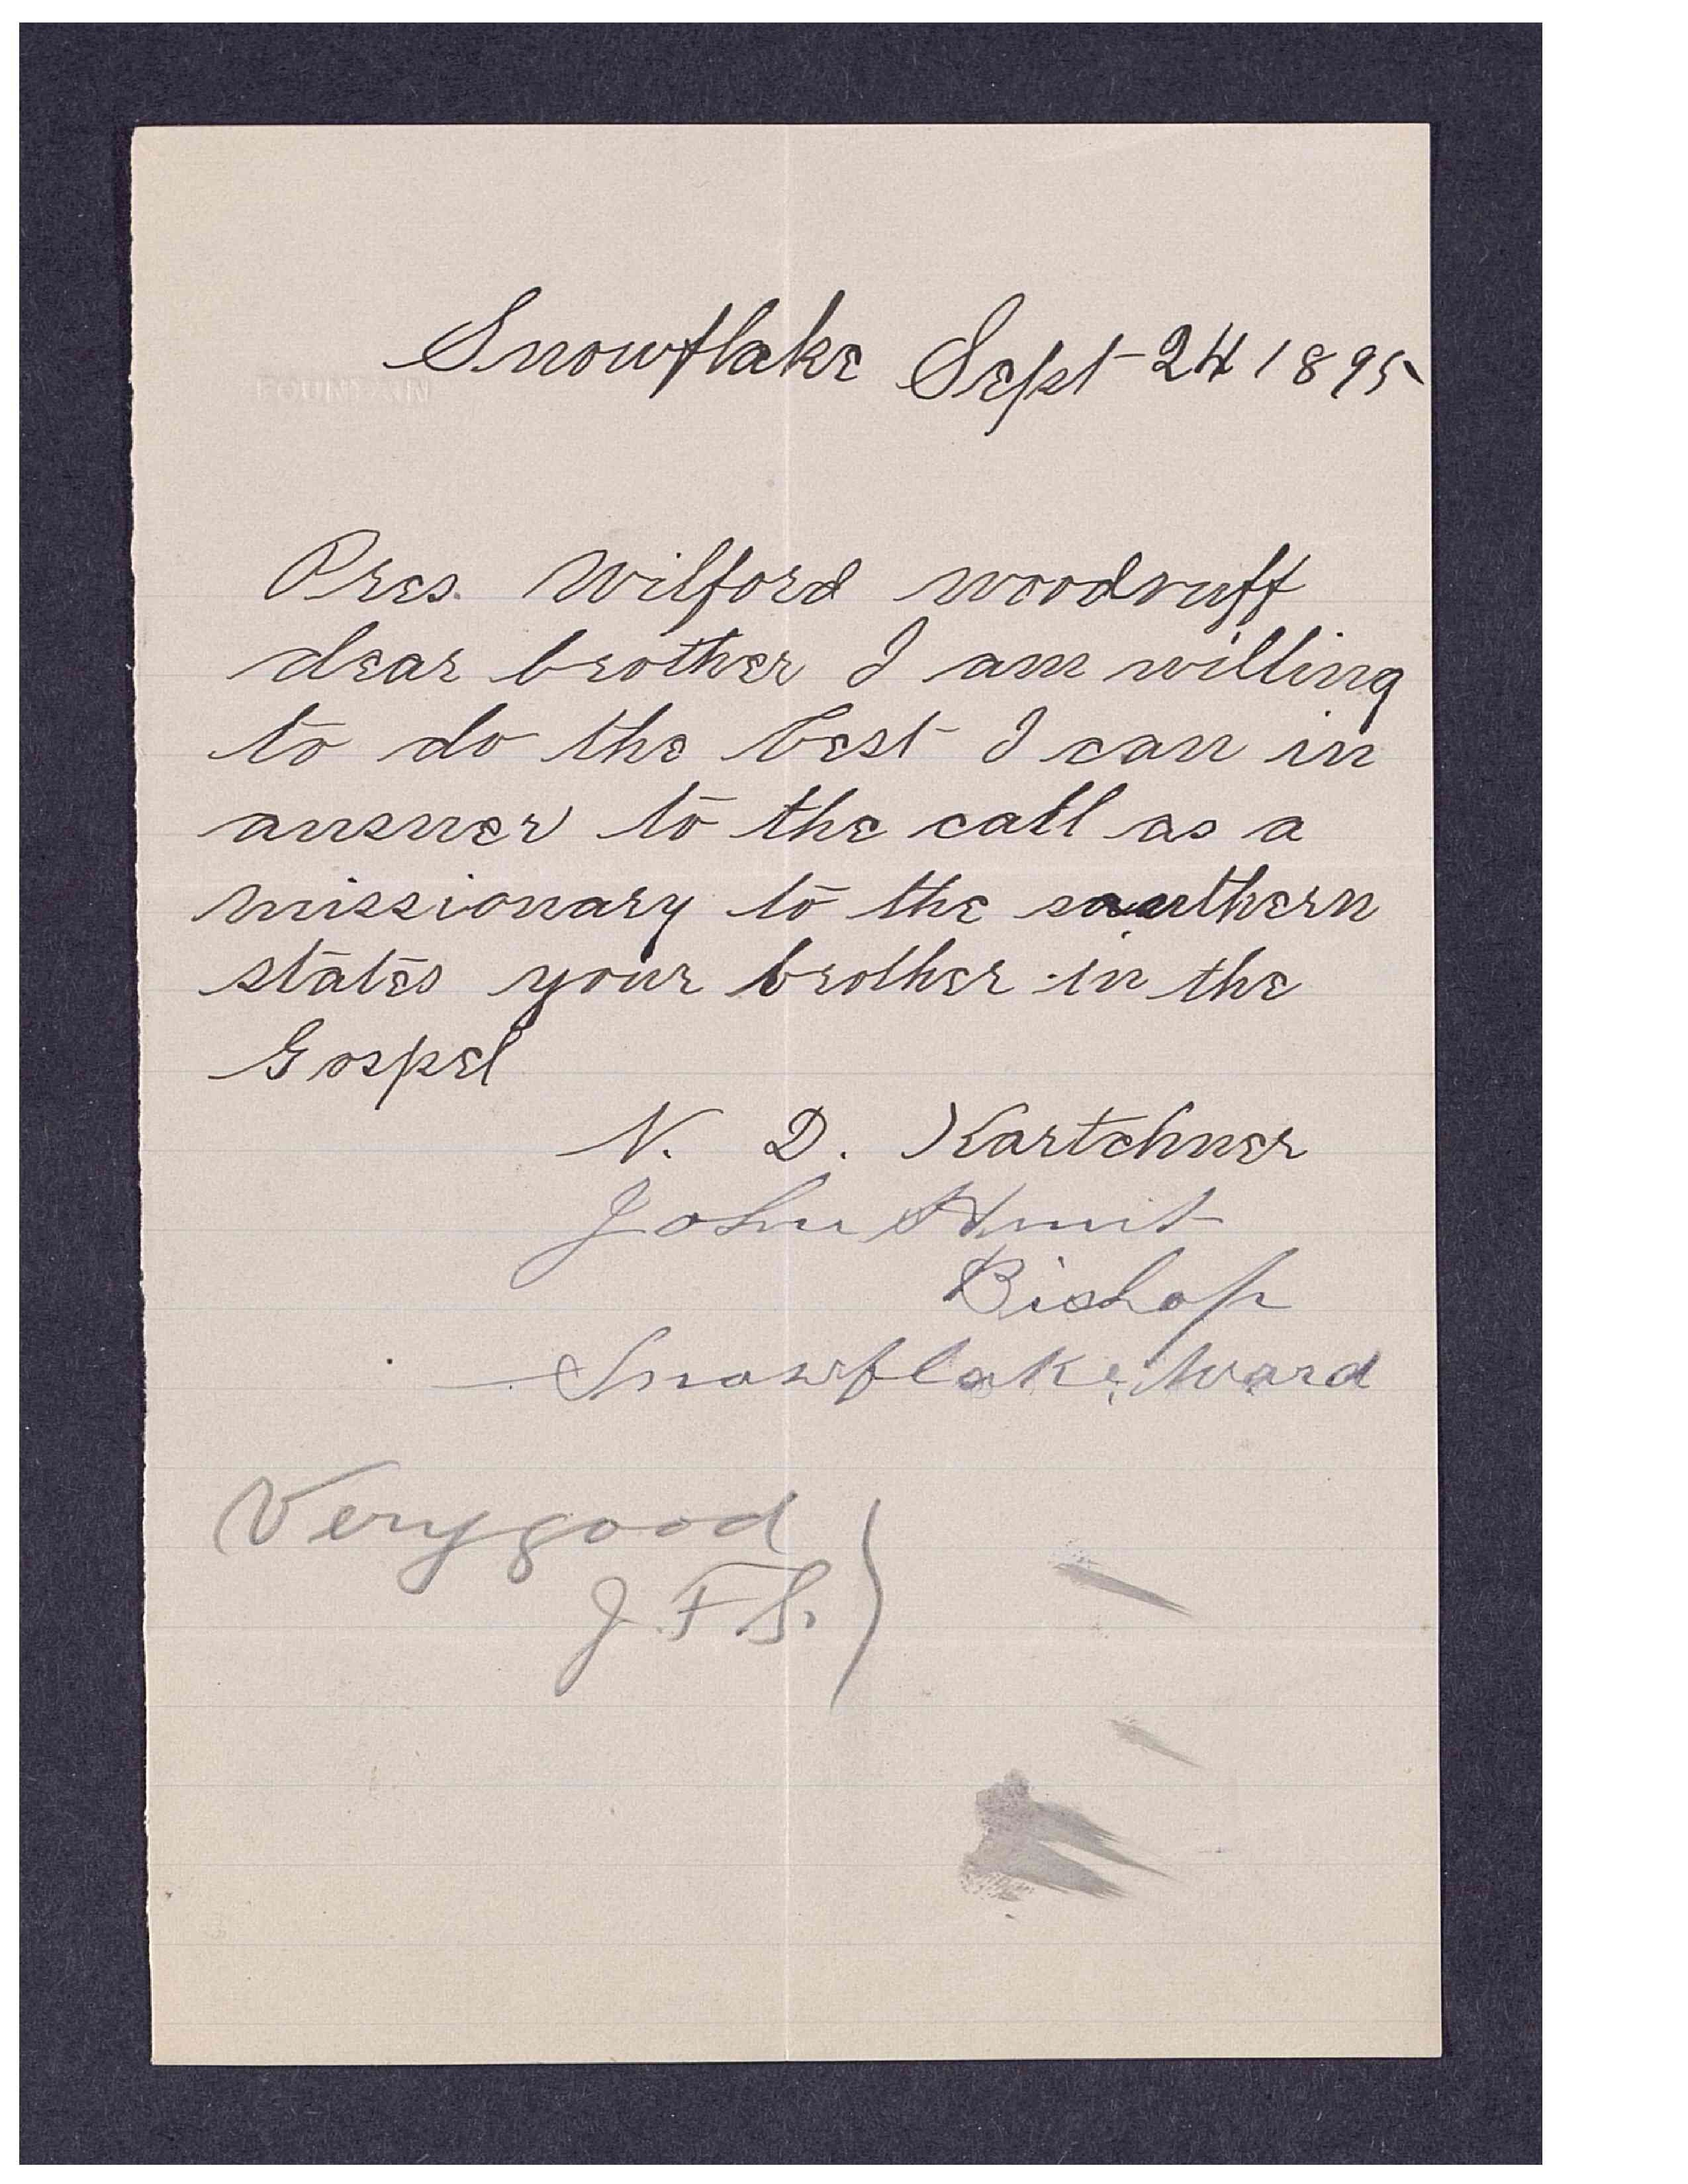 Snowflake Sept 24 1895
FOUNTAIN
Pres. Wilford woodruff
dear brother I am willing
to do the best I can in
answer to the call as a
missionary to the southern
states your brother in the
Gospel
N. D. Kartchner
John Hunt
Bishop
Snowflake Ward
Very good
J. F. S.